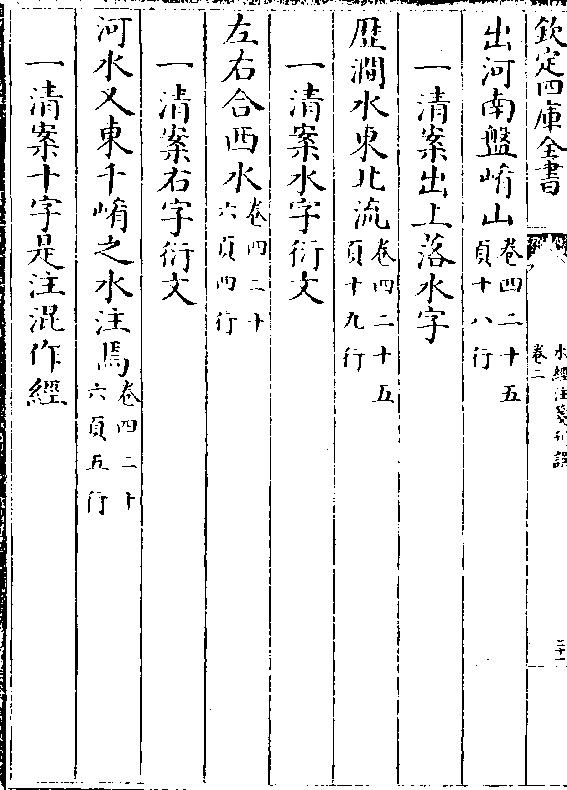 欽定四庫全書
水經注箋刊誤
卷二
二十一
出河南盤崤山卷四二十五頁十八行
一清案出上落水字
歷澗水東北流卷四二十五頁十九行
一清案水字衍文
左右合西水卷四二十六頁四行
一清案右字衍文
河水又東千崤之水注焉卷四二十六頁五行
一清案十字是注混作經